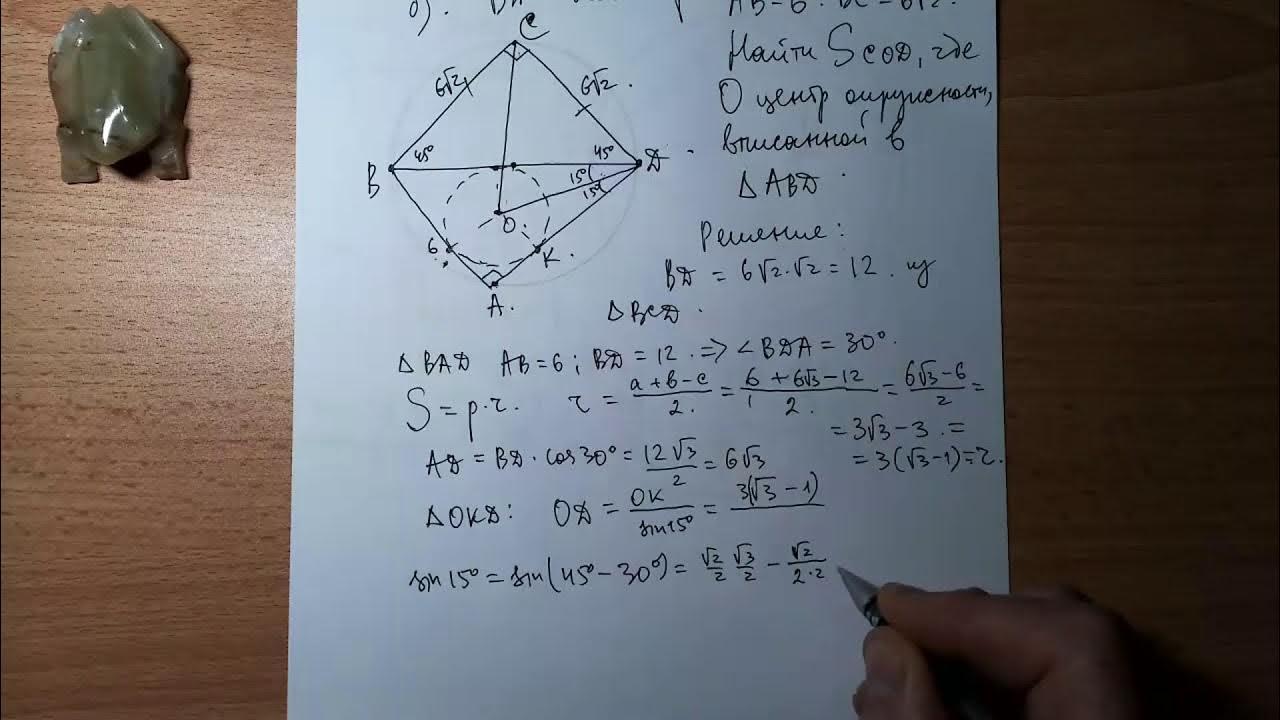 б).
AB=6. BC=6√2.
Найти S COD, где
О центр окружности,
вписанной в
△ABD.
C
6√2
6√2.
45°
45°
B
D
15°
15°
O.
6
K.
A.
Решение:
BD = 6√2·√2 = 12. из
△BCD.
△BAD AB=6; BD=12. => ∠BDA = 30°.
S = p·r. r = (a+b-c)/2. = (6+6√3-12)/2. = (6√3-6)/2 =
= 3√3-3. =
AD = BD·cos30° = 12√3/2 = 6√3
= 3(√3-1)=r.
△OKD: OD = OK/sin15° = 3(√3-1)
sin15° = sin(45°-30°) = √2/2 √3/2 - √2/2·2